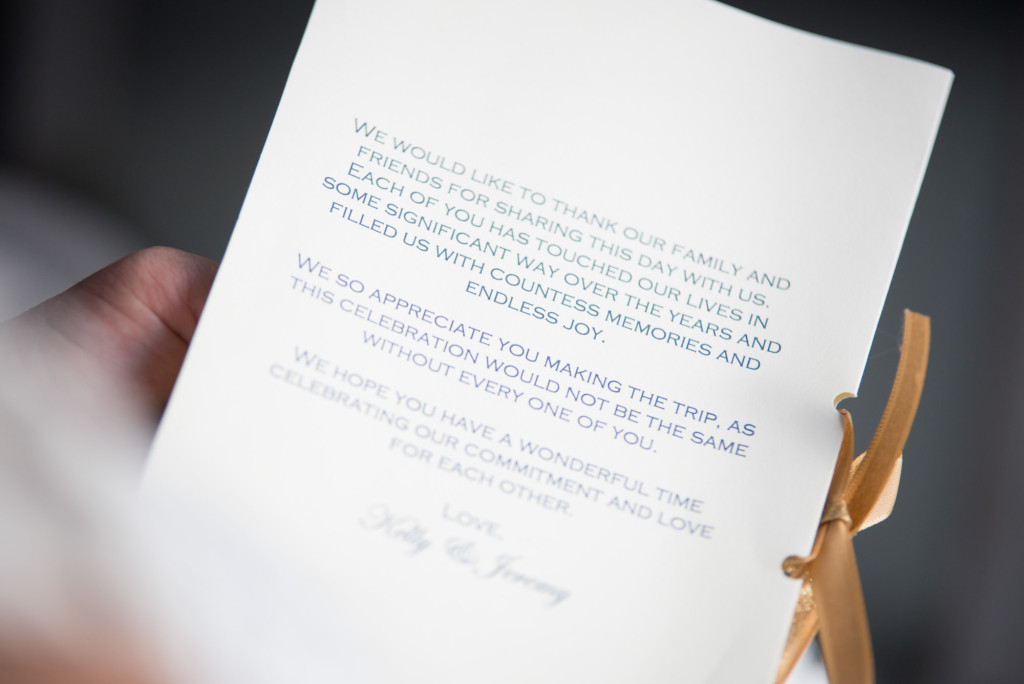 WE WOULD LIKE TO THANK OUR FAMILY AND
FRIENDS FOR SHARING THIS DAY WITH US.
EACH OF YOU HAS TOUCHED OUR LIVES IN
SOME SIGNIFICANT WAY OVER THE YEARS AND
FILLED US WITH COUNTESS MEMORIES AND
ENDLESS JOY.
WE SO APPRECIATE YOU MAKING THE TRIP, AS
THIS CELEBRATION WOULD NOT BE THE SAME
WITHOUT EVERY ONE OF YOU.
WE HOPE YOU HAVE A WONDERFUL TIME
CELEBRATING OUR COMMITMENT AND LOVE
FOR EACH OTHER.
LOVE,
Kelly & Jeremy